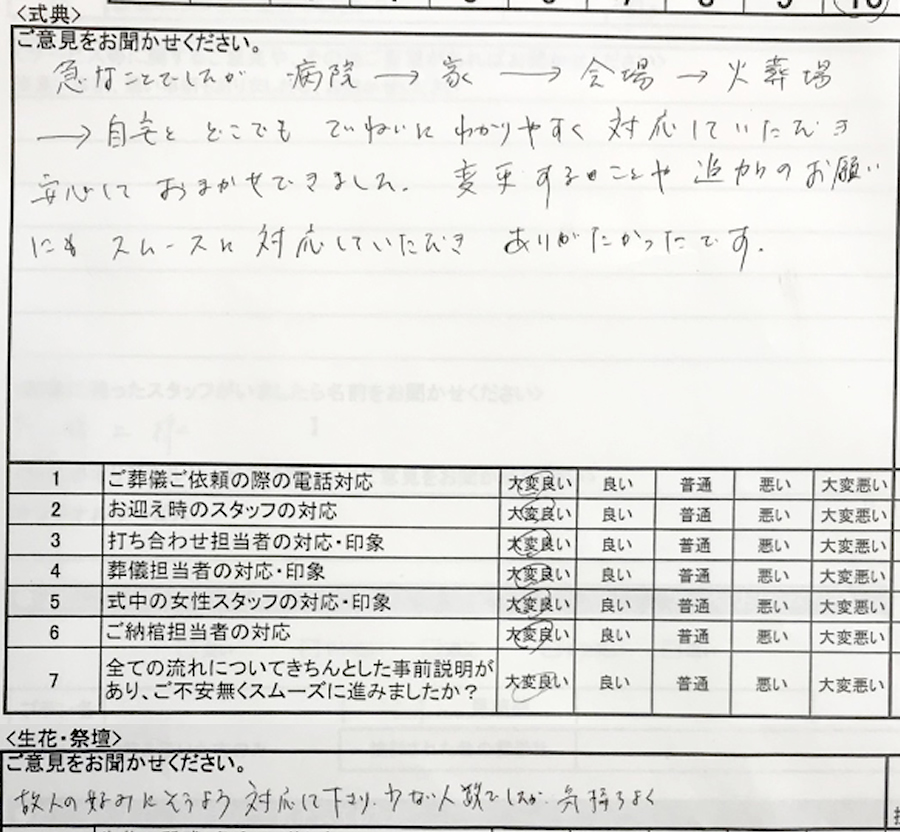 <式典>
6 7 8 9 10
ご意見をお聞かせください。
急なことでしたが 病院→家→会場→火葬場
→自宅と どこでも ていねいに わかりやすく 対応していただき
安心して おまかせできました。 変更することや 追加のお願い
にも スムースに 対応していただき ありがたかったです。
1 ご葬儀ご依頼の際の電話対応 大変良い 良い 普通 悪い 大変悪い
2 お迎え時のスタッフの対応 大変良い 良い 普通 悪い 大変悪い
3 打ち合わせ担当者の対応・印象 大変良い 良い 普通 悪い 大変悪い
4 葬儀担当者の対応・印象 大変良い 良い 普通 悪い 大変悪い
5 式中の女性スタッフの対応・印象 大変良い 良い 普通 悪い 大変悪い
6 ご納棺担当者の対応 大変良い 良い 普通 悪い 大変悪い
7 全ての流れについてきちんとした事前説明が
あり、ご不安無くスムーズに進みましたか？ 大変良い 良い 普通 悪い 大変悪い
<生花・祭壇>
ご意見をお聞かせください。
故人の好みにそうよう 対応して下さり、少ない人数でしたが 気持ちよく